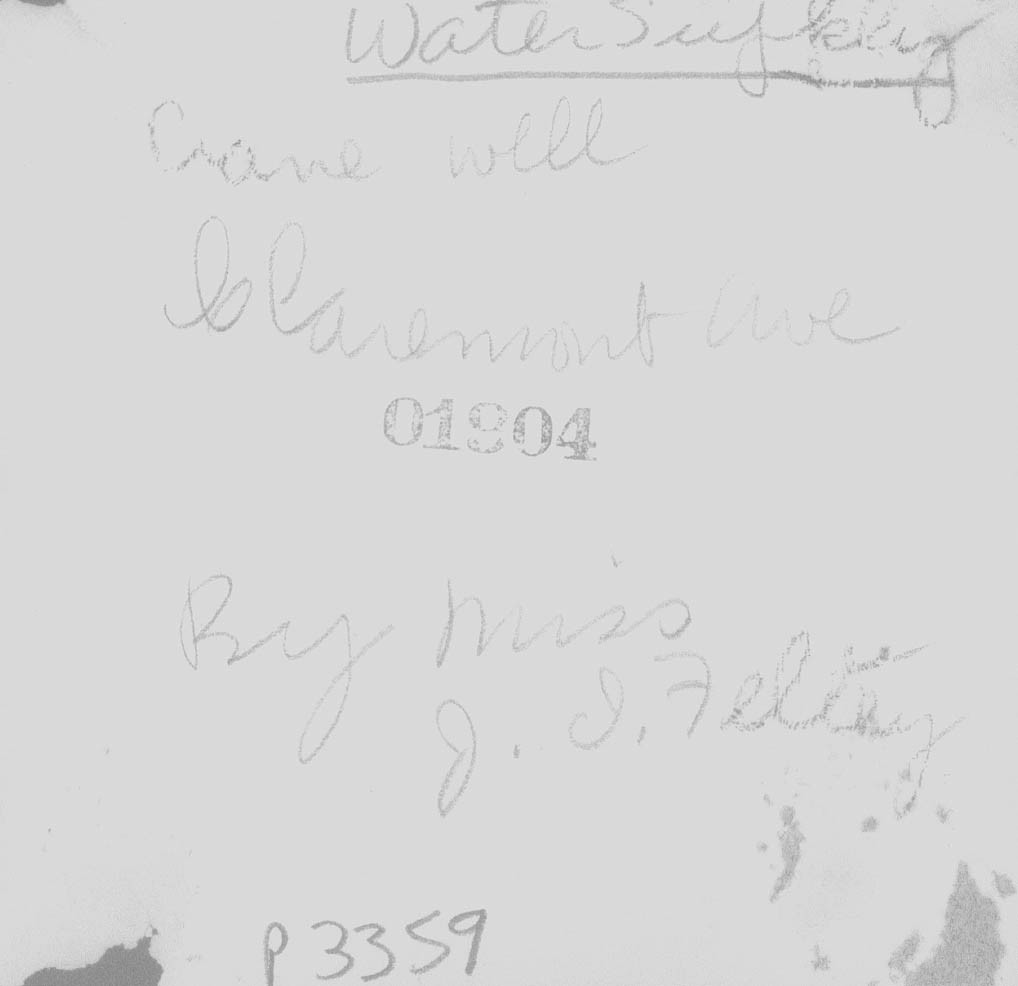 Water Supply
Crane well
Claremont Ave
01904
By Miss
J. I. Feltey
P3359